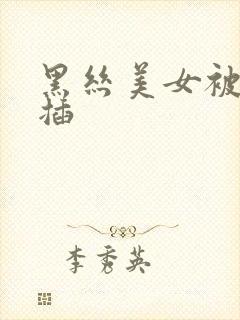 黑丝美女被
插
李秀英